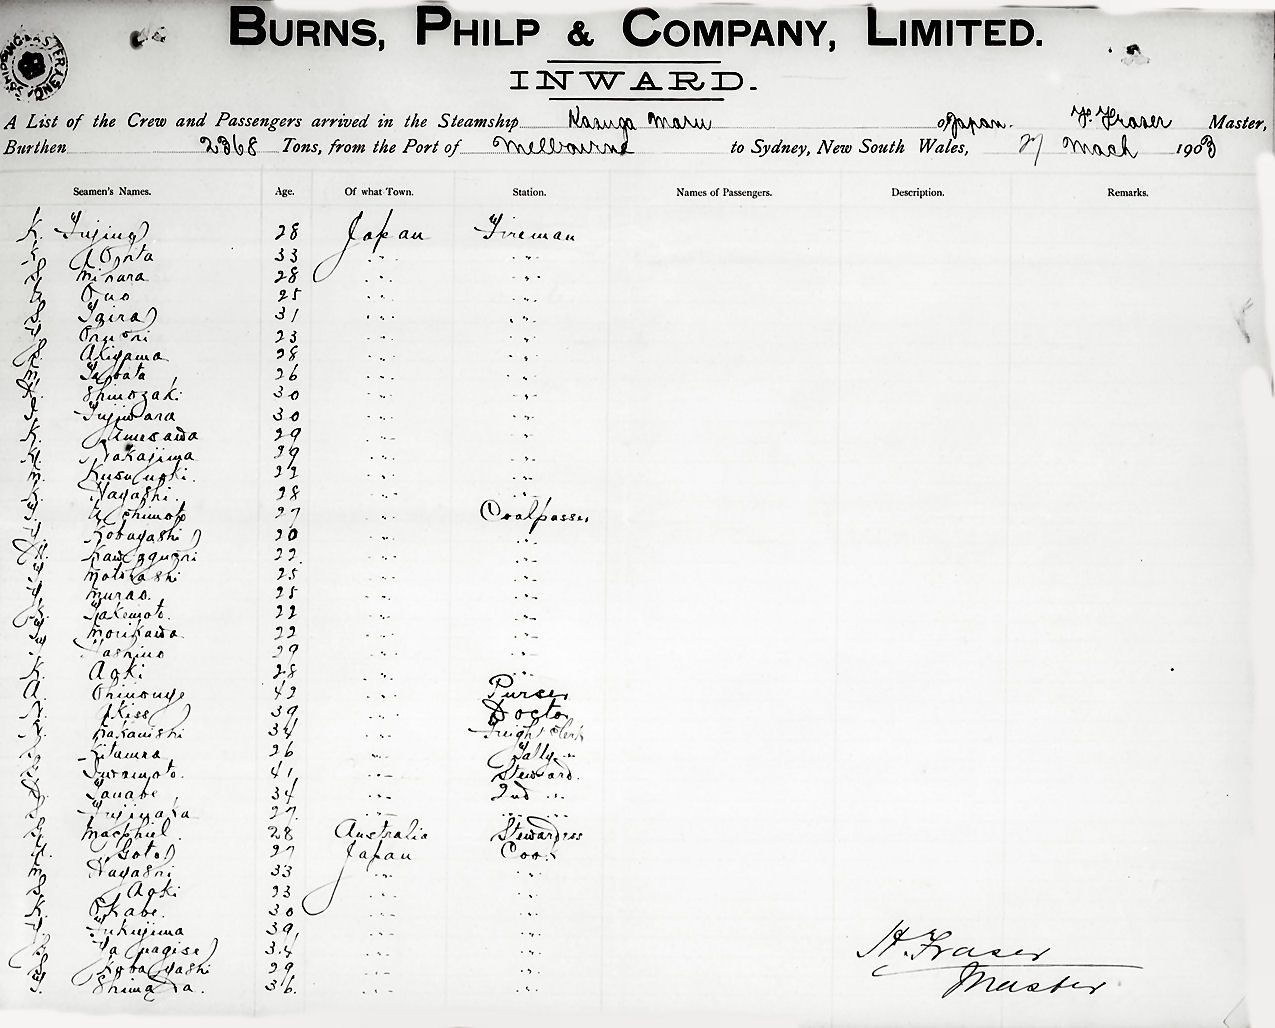 BURNS, PHILP & COMPANY, LIMITED.
INWARD.
A List of the Crew and Passengers arrived in the Steamship Kasuga Maru of Japan. Fraser Master,
Burthen 2368 Tons, from the Port of Melbourne to Sydney, New South Wales, 27 Mach 1903
Seamen's Names. Age. Of what Town. Station. Names of Passengers. Description. Remarks.
K. 28 Japan Fireman
33 " "
S. Mihara 28 " "
Ono 25 " "
S. 31 " "
23 " "
S. Akiyama 28 " "
M. Tabata 26 " "
Shinozaki 30 " "
Fujiwara 30 " "
K. Umesawa 29 " "
Nakajima 29 " "
M. 22 " "
K. Hayashi. 28 " "
27 " Coalpasser
Kobayashi 20 " "
22 " "
25 " "
Murao. 25 " "
Takemoto. 22 " "
Morikawa 22 " "
Yoshino 29 " "
K. Aoki 28 " "
A. 42 " Purser
Kiss 39 " Doctor
Nakanishi 34 " Freight Clerk
Kitamura 26 " Tally "
Iwamoto. 41 " Steward.
Tanabe 34 " 2nd "
27. " "
Macphiel 28 Australia Stewardess
Goto 27 Japan Cook
M. Hayashi 33 " "
S. Aoki 23 " "
K. Okabe. 30 " "
Fukujima 39, " "
34 " "
Kobayashi 29 " "
36. " "
H. Fraser
Master